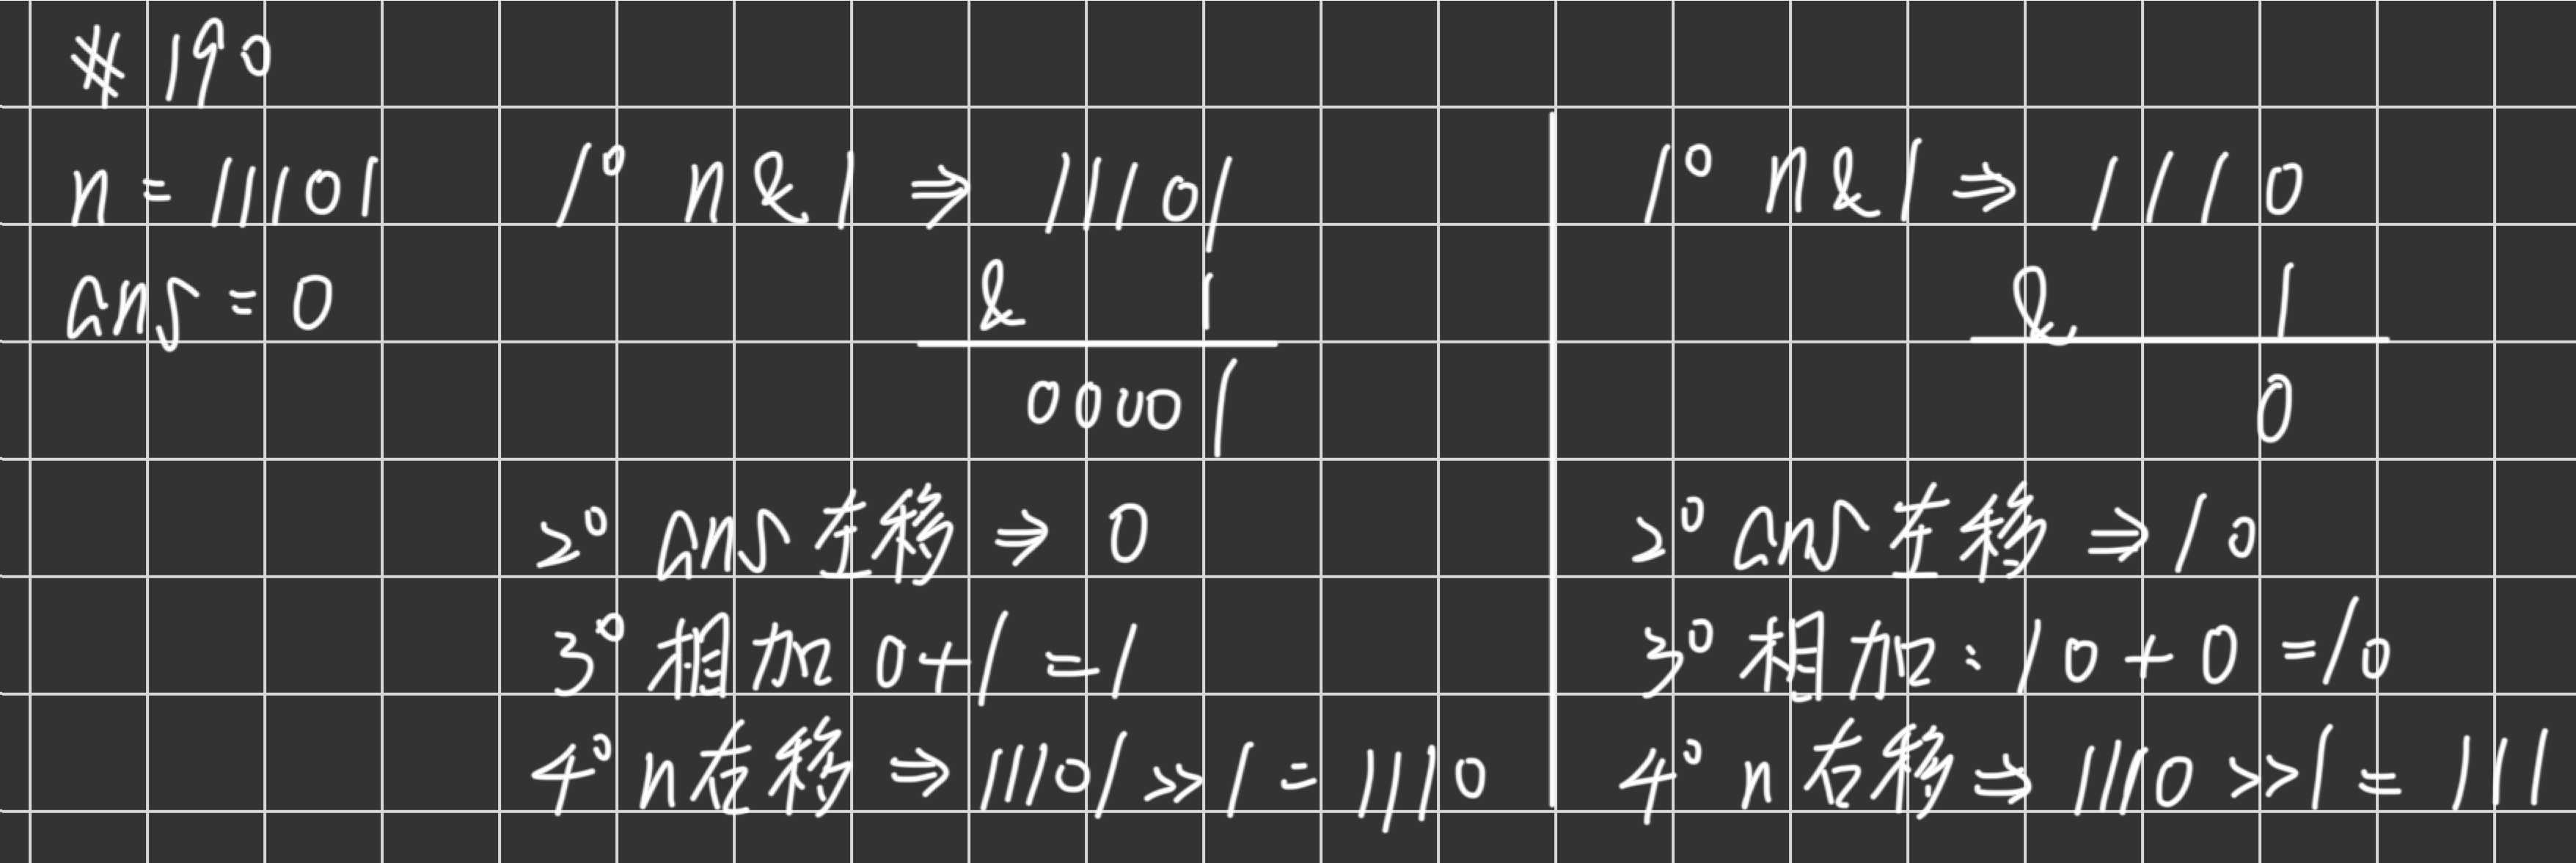 # 190
n = 11101
ans = 0
1° n & 1 ⇒ 11101
& 1
00001
2° ans 左移 ⇒ 0
3° 相加 0+1 = 1
4° n右移 ⇒ 11101 >> 1 = 1110
1° n & 1 ⇒ 1110
& 1
0
2° ans 左移 ⇒ 10
3° 相加: 10 + 0 = 10
4° n右移 ⇒ 1110 >> 1 = 111